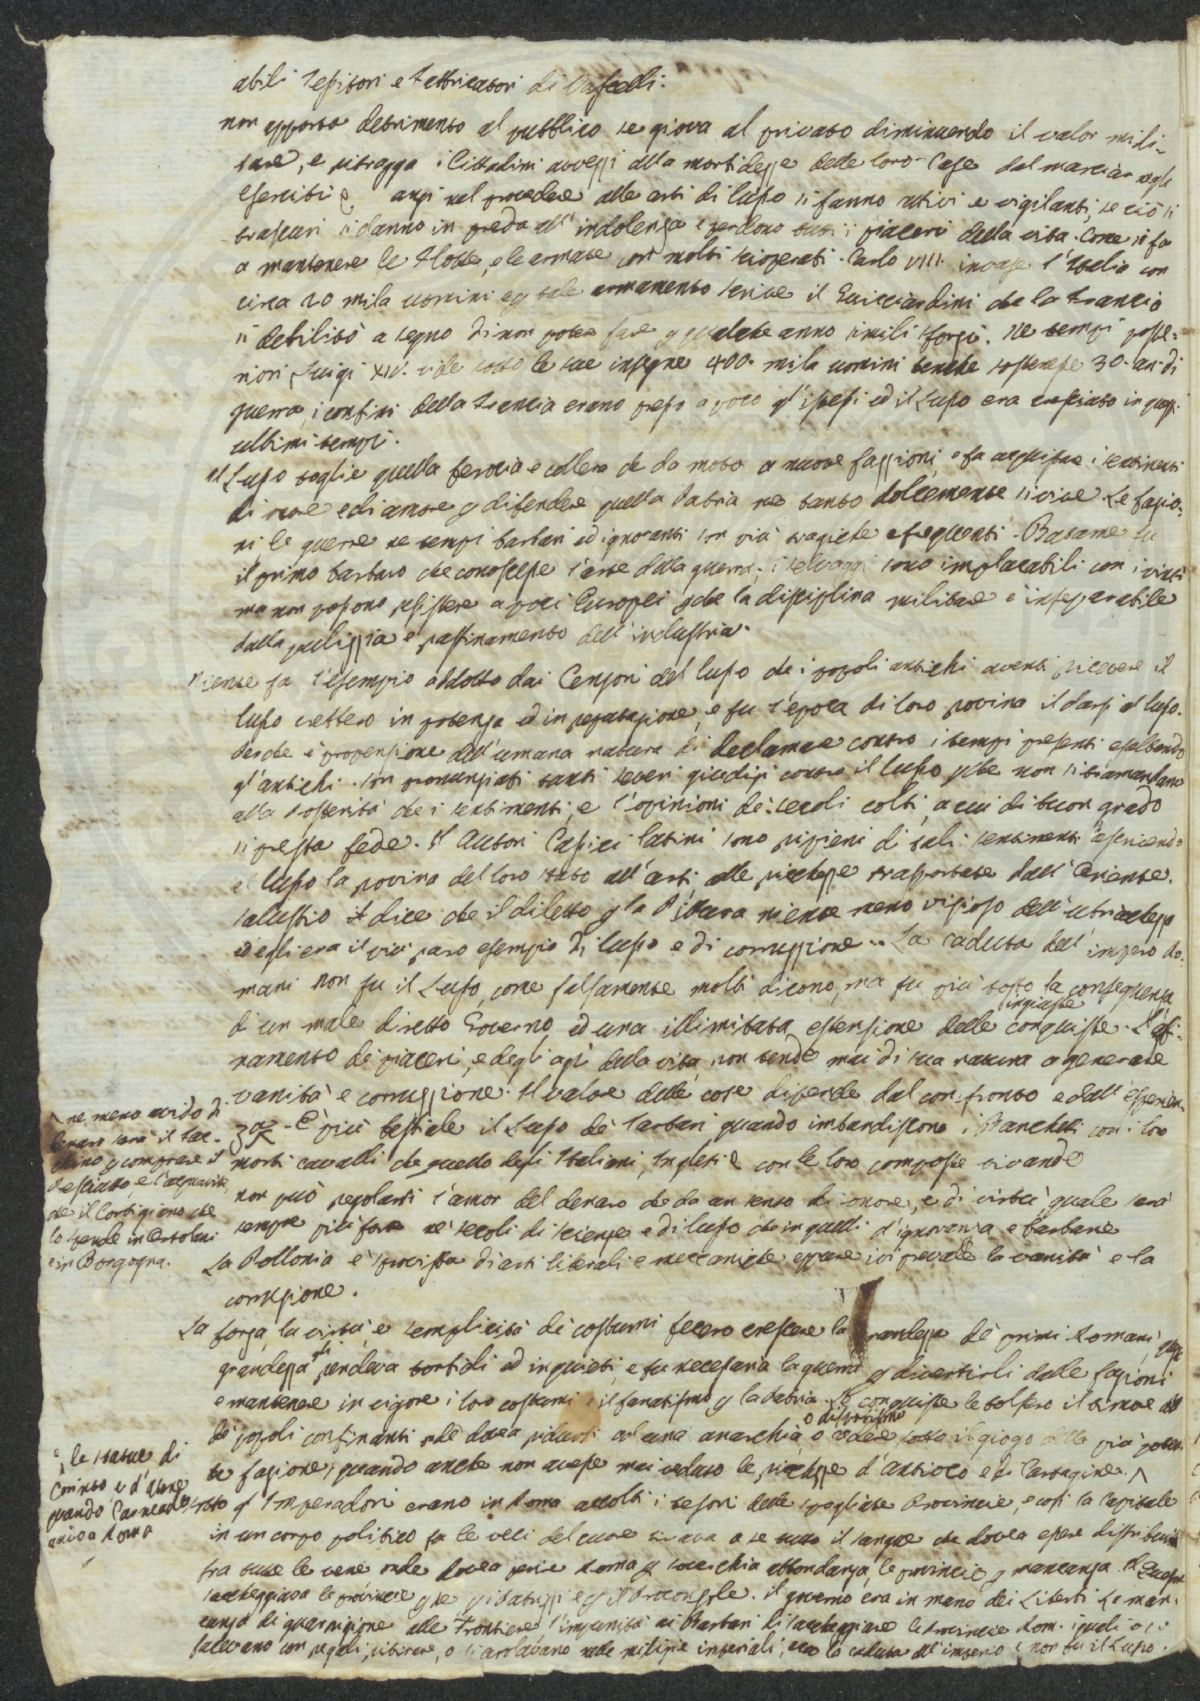 abili Tessitori e Fabbricatori di Vascelli.
non apporta detrimento al pubblico se giova al privato diminuendo il valor mili-
tare, e ritragga i Cittadini avvezzi alla morbidezze delle loro Case dal marciar negli
Eserciti? anzi nel procedere alle arti di lusso si fanno attivi e vigilanti, se ciò si
trascuri si danno in preda all' indolenza e perdono tutti i piaceri della vita. Come si fa
a mantenere le Flotte, e le armate con molti scioperati. Carlo VIII. invase l'Italia con
circa 20 mila uomini e p tale armamento scrive il Guicciardini che la Francia
si debilitò a segno di non poter fare p qualche anno simili sforzi. Ne tempi poste-
riori Luigi XIV. vide sotto le sue insegne 400. mila uomini benche sostenesse 30. an: di
guerra, i confini della Francia erano presso a poco gl'istessi ed il Lusso era cresciuto in quegl.
ultimi tempi.
il Lusso toglie quella ferocia e collera che da moto a nuove fazzioni e fa acquistare i sentimenti
di onore e di amore p difendere quella Patria ne tanto dolcemente si vive. Le fazio-
ni, le guerre ne tempi barbari ed ignoranti son più tragiche e frequenti. Batame fu
il primo barbaro che conoscesse l'arte della guerra; i selvaggi sono implacabili con i vinti
ma non possono resistere a poci Europei pche la disciplina militare è inseparabile
dalla pulizzia e raffinamento dell' industria.
niente fa l'esempio addotto dai Censori del lusso che i popoli antichi aventi ricevere il
lusso crettero in potenza ed in reputazione, e fu l'epoca di loro rovina il darsi al lusso.
perche e' propensione dell'umana natura di declamare contro i tempi presenti esaltando
gl'antichi. son pronunziati tanti severi giudizi contro il lusso pche non si tramandano
alla Posterità che i sentimenti, e l'opinioni de' secoli colti, a cui di buon grado
si presta fede. Gl'Autori Classici latini sono ripieni di tali sentimenti asserendo
il lusso la rovina del loro stato all' arti, alle ricchezze trasportate dall' Oriente.
Salustio dice che il diletto p la Pittura niente meno vizioso dell' ubriachezza
ed egli era il più raro esempio di lusso e di corruzzione. La caduta dell' impero Ro-
mani non fu il Lusso, come falsamente molti dicono, ma fu più tosto la conseguenza
ingiuste
di un male diretto Governo, ed una illimitata estensione delle conquiste. L'affi-
namento de' piaceri, e degli agi della vita non tende mai di sua natura a generare
vanità e corruzione. Il valore delle cose dipende dal confronto e dall' esperien-
za. È più bestiale il Lusso de' Tartari quando imbandiscono i Banchetti con i loro
morti cavalli che quello degl' Italiani, Inglesi con le loro composte vivande
non può regolarsi l'amor del denaro che da un senso di onore, e di virtù quale sarà
sempre più forte ne' secoli di scienze e di lusso che in quelli d'ignoranza e barbarie
La Pollonia è sprovista d'arti liberali e meccaniche eppure ivi prevale la vanità e la
corruzione.
^ ne meno avido di
denaro sarà il fac-
chino p comprare il
Presciuto, e l'acquavite
che il Cortigiano che
lo spende in Ortolani
e in Borgogna.
La forza, la virtù, e semplicità de' costumi fecero crescere la grandezza de' primi Romani, quest
grandezza gli rendeva torbidi ed inquieti, e fu necessaria la guerra p divertirli dalle fazioni
e mantenere in vigore i loro costumi e il fanatismo p la Patria. Le conquiste le tolsero il timore del
o dispotismo
de' popoli confinanti onde dovea ridursi ad una anarchia, o cadere sotto il giogo della più poten-
te fazione, quando anche non avesse mai veduto le ricchezze d'Antioco e di Cartagine. ^
^ le statue di
Corinto e d'Atene
quando Carneade
arrivò a Roma
sotto gl' Imperadori erano in Roma accolti i tesori delle spogliate Provincie, e così la Capitale
in un corpo politico fa le veci del cuore tirava a se tutto il sangue che dovea essere distribuito
fra tutte le vene onde dovea perir Roma p soverchia abbondanza, le provincie p mancanza.
saccheggiava le provincie il Proconsole. il governo era in mano dei Liberti La man-
canza di guarnizione alle Frontiere l'impunità ai Barbari di saccheggiare le Provincie Rom. i quali o si
facevano con regali ritirare, o si arolavano nelle milizie imperiali, ecco la caduta dell' impero e non fu il Lusso.